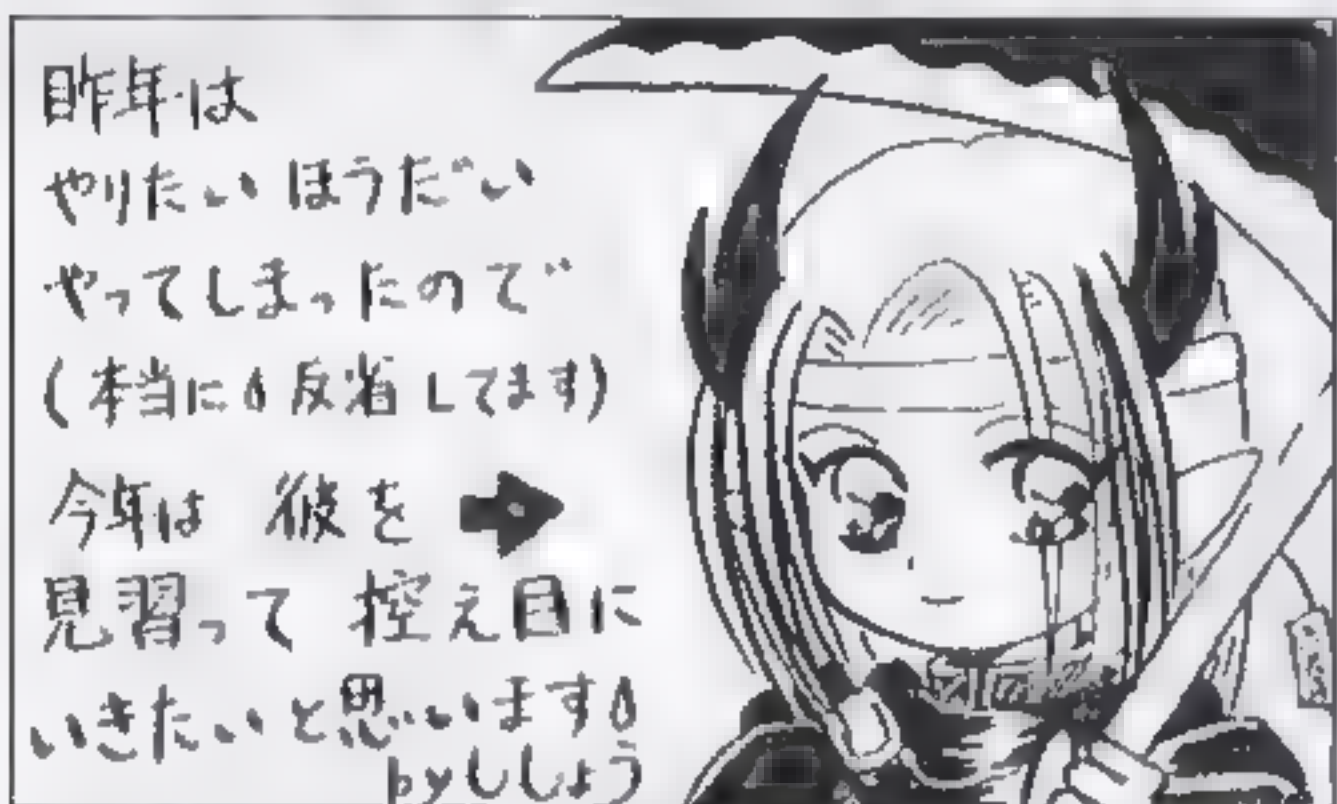 昨年は
やりたいほうだい
やってしまったので
(本当に反省してます)
今年は 彼を➡
見習って 控え目に
いきたいと思います
byししょう